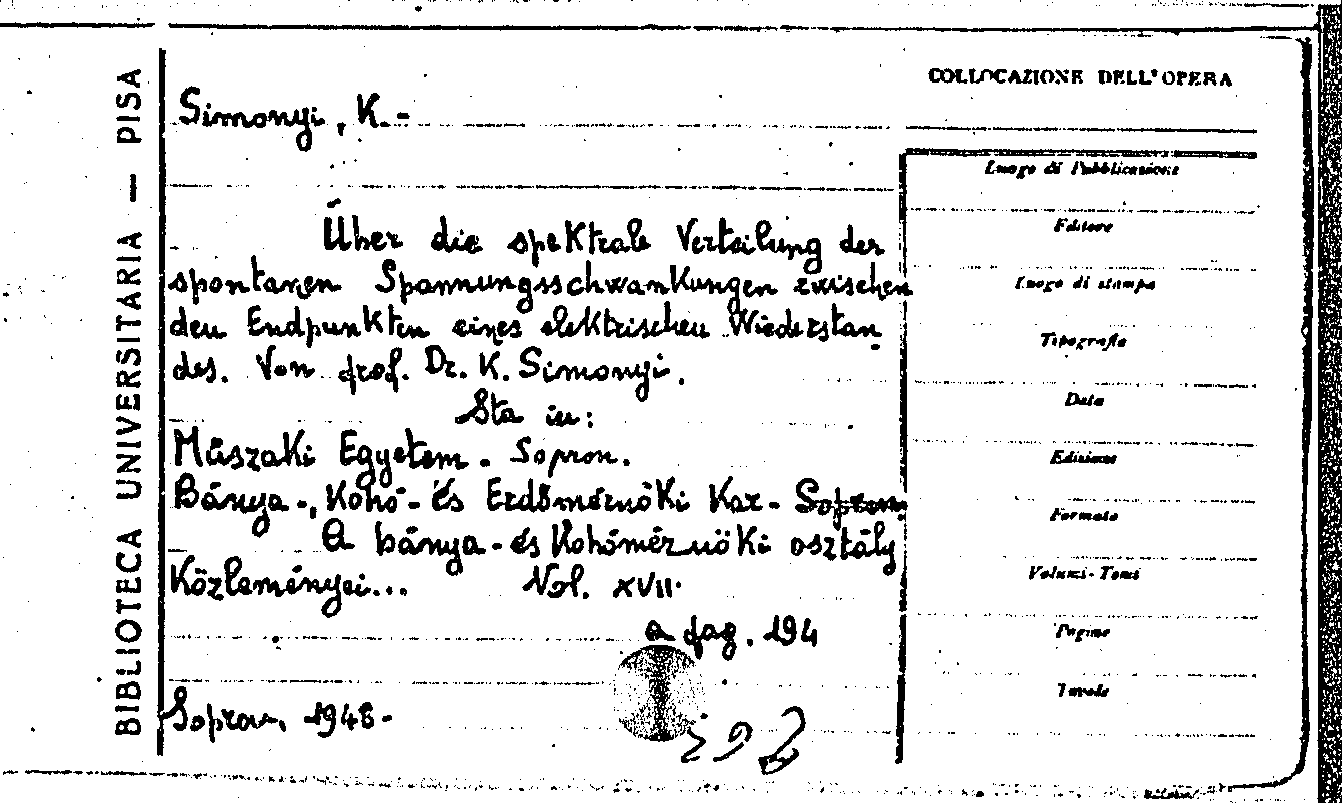 BIBLIOTECA UNIVERSITARIA — PISA
Simonyi, K.-
Über die spektrale Verteilung der
spontanen Spannungsschwankungen zwischen
den Endpunkten eines elektrischen Wiederstan
des. Von prof. Dr. K. Simonyi.
Sta in:
Műszaki Egyetem. Sopron.
Bánya-, Kohó- és Erdőmérnöki Kar- Sopron.
A bánya- és Kohómérnöki osztály
Közleményei... Vol. XVII.
a pag. 194
Sopron, 1948-
COLLOCAZIONE DELL'OPERA
Luogo di Pubblicazione
Editore
Luogo di stampa
Tipografia
Data
Edizione
Formato
Volumi-Tomi
Pagine
Tavole